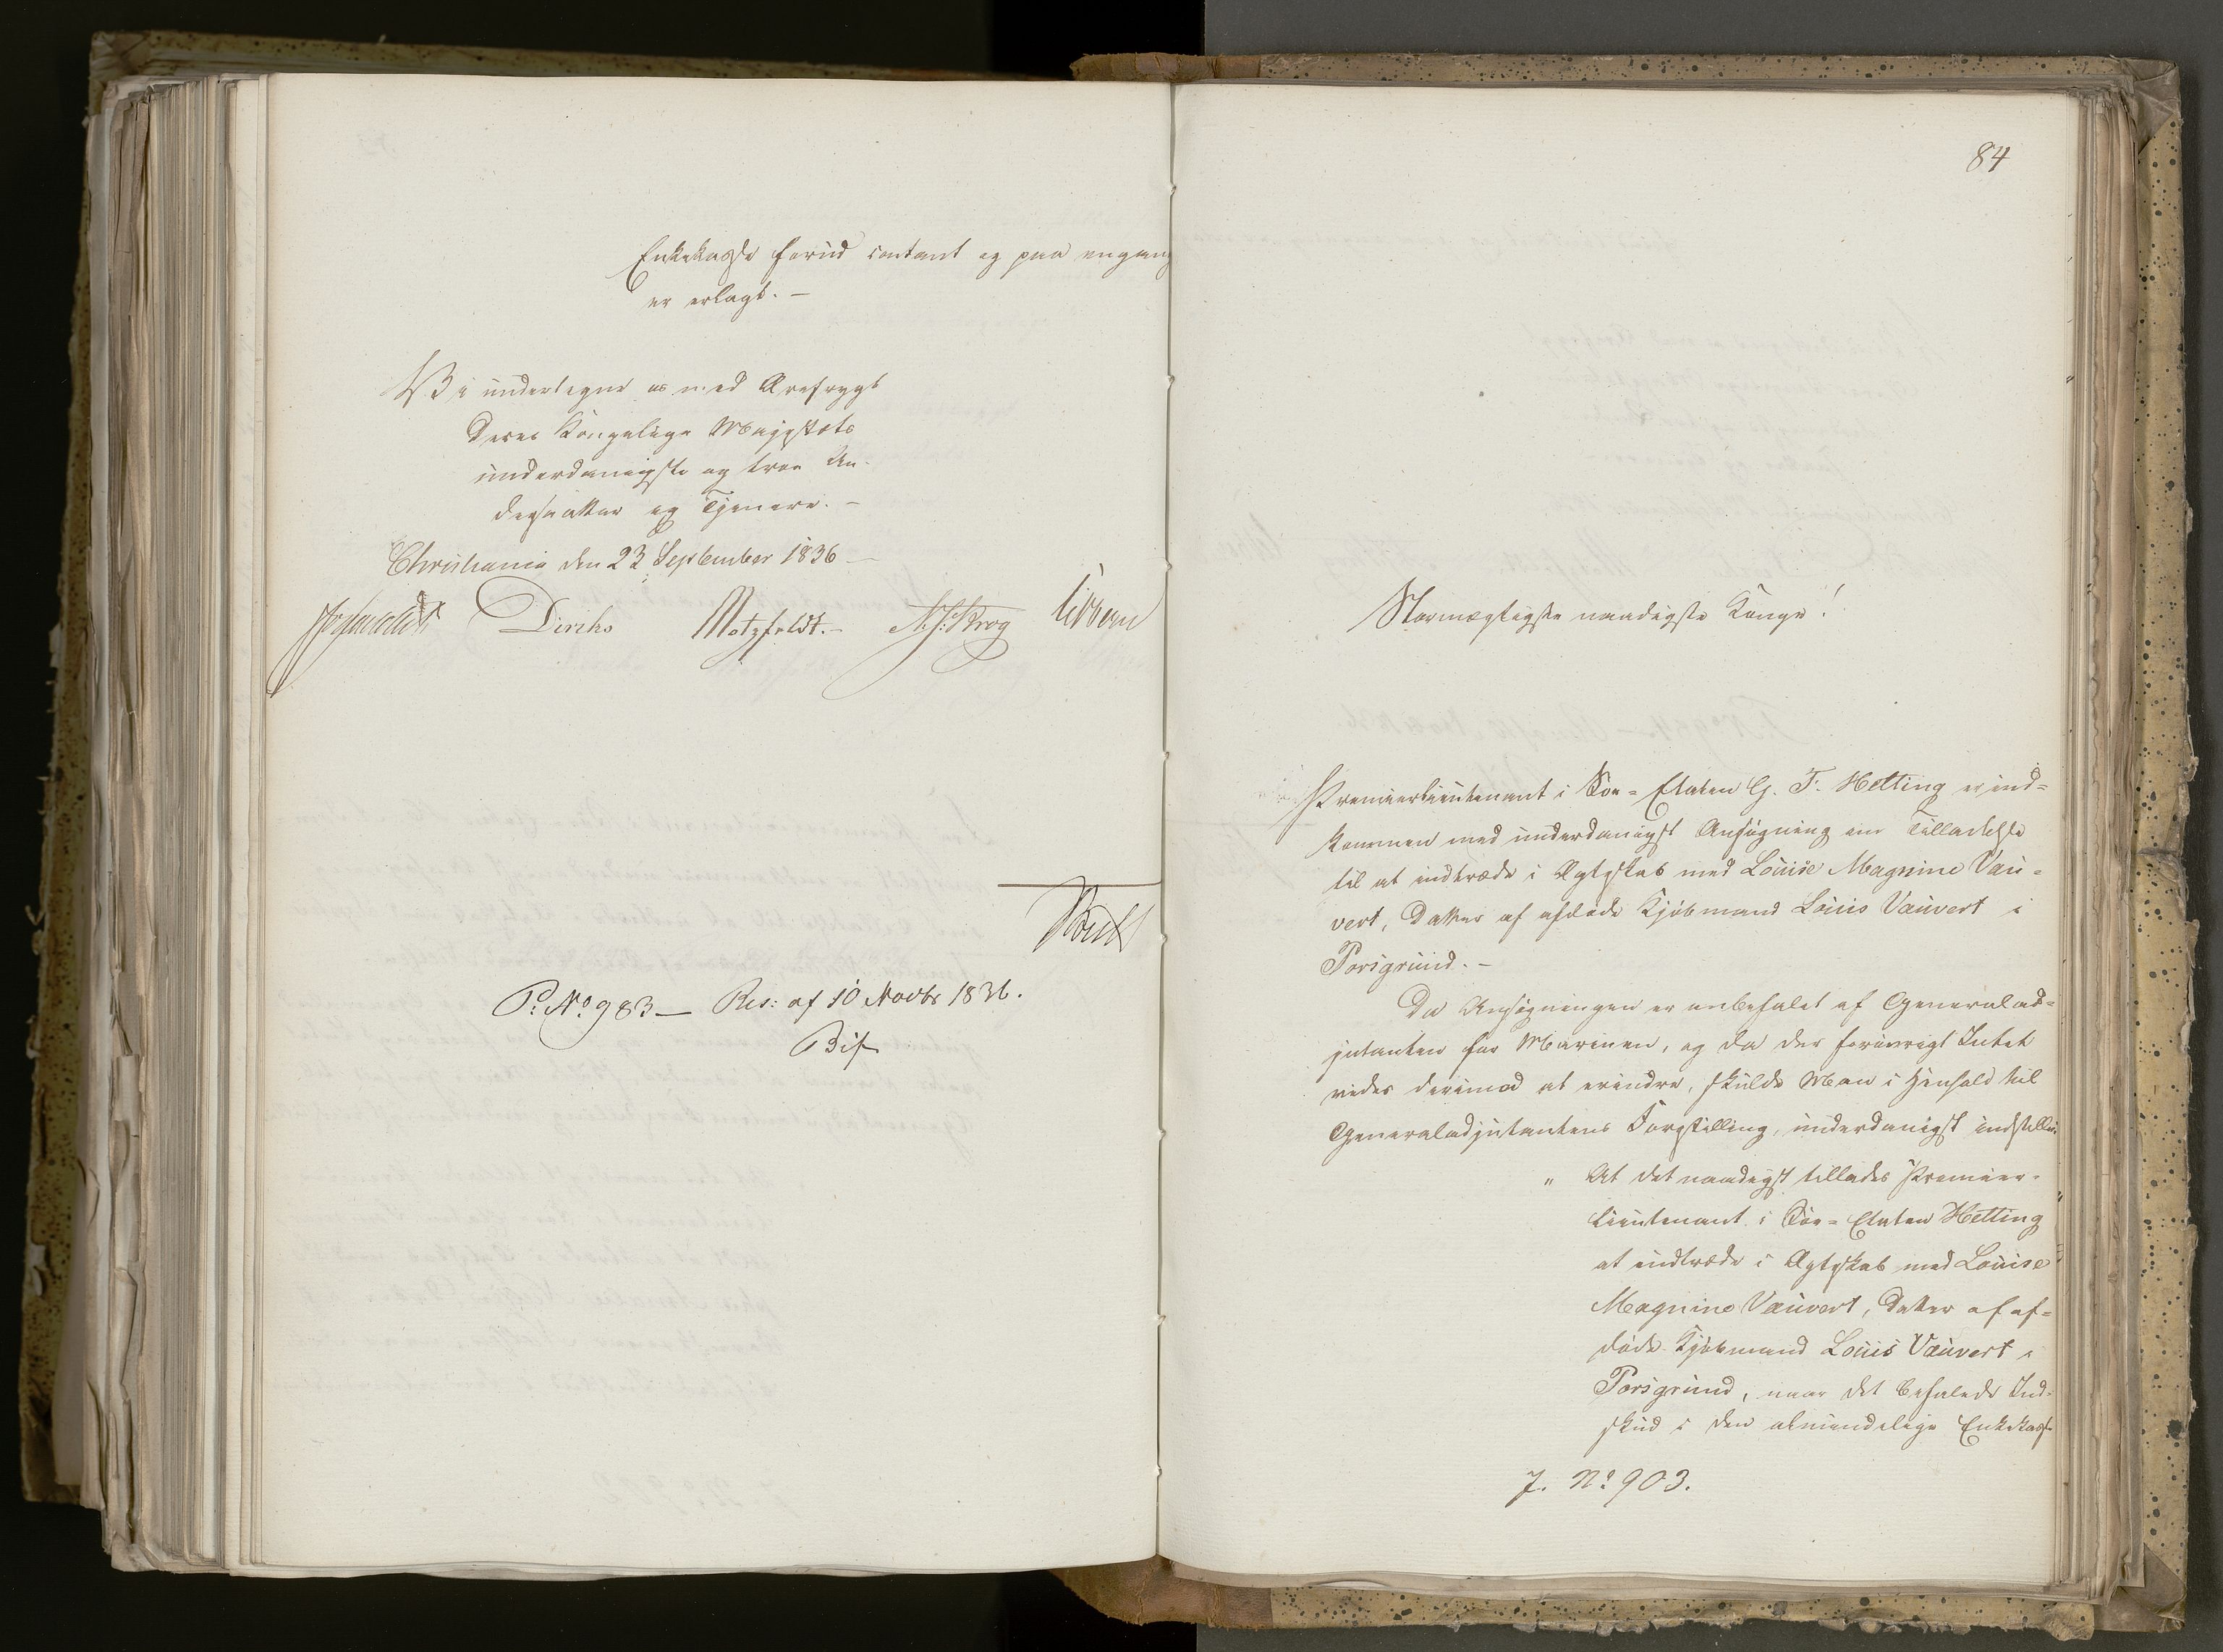 Enkekasse forud contant og paa engang
er erlagt. —
Vi undertegne os med Ærefrygt
Deres Kongelige Majestæts
underdanigste og troe Un-
dersaatter og Tjenere. —
Christiania den 23 September 1836 —
Diriks Motzfeldt. — Vibe
P: No 983 — Res: af 10 Novbr 1836.
84
Stormægtigste naadigste Konge!
Premierlieutenant i Søe-Etaten G. F. Hetting er ind-
kommen med underdanigst Ansøgning om Tilladelse
til at indtræde i Ægteskab med Louise Magnine Vau-
vert, Datter af afdøde Kjøbmand Louis Vauvert i
Porsgrund. —
Da Ansøgningen er anbefalet af Generalad-
jutanten for Marinen, og da der forøvrigt Intet
vides derimod at erindre, skulde Man i Henhold til
Generaladjutantens Forestilling, underdanigst indstille:
" At det naadigst tillades Premier-
lieutenant i Søe-Etaten Hetting
at indtræde i Ægteskab med Louise
Magnine Vauvert, Datter af af-
døde Kjøbmand Louis Vauvert i
Porsgrund, naar det befalede Ind-
skud i den almindelige Enkekasse
J. No 903.